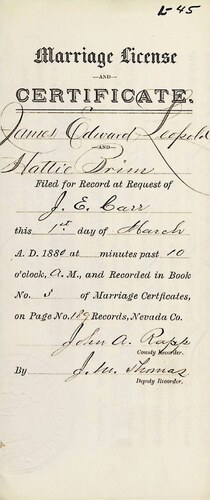 L-45
Marriage License
AND
CERTIFICATE.
James Edward Leopold
AND
Hattie Trim
Filed for Record at Request of
J. E. Carr
this 1st day of March
A. D. 1880 at minutes past 10
o'clock, A. M., and Recorded in Book
No. 3 of Marriage Certficates,
on Page No. 189 Records, Nevada Co.
John A. Rapp
County Recorder.
By J. M. Thomas
Deputy Recorder.